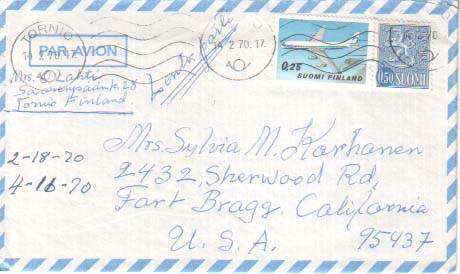 TORNIO
14.2.70.17.
PAR AVION
0,25
SUOMI FINLAND
0,50 SUOMI
Mrs. Lahti
28
Tornio Finland
2-18-70
4-16-70
Mrs. Sylvia M. Karhanen
2432, Sherwood Rd,
Fort Bragg. California
U. S. A. 95437